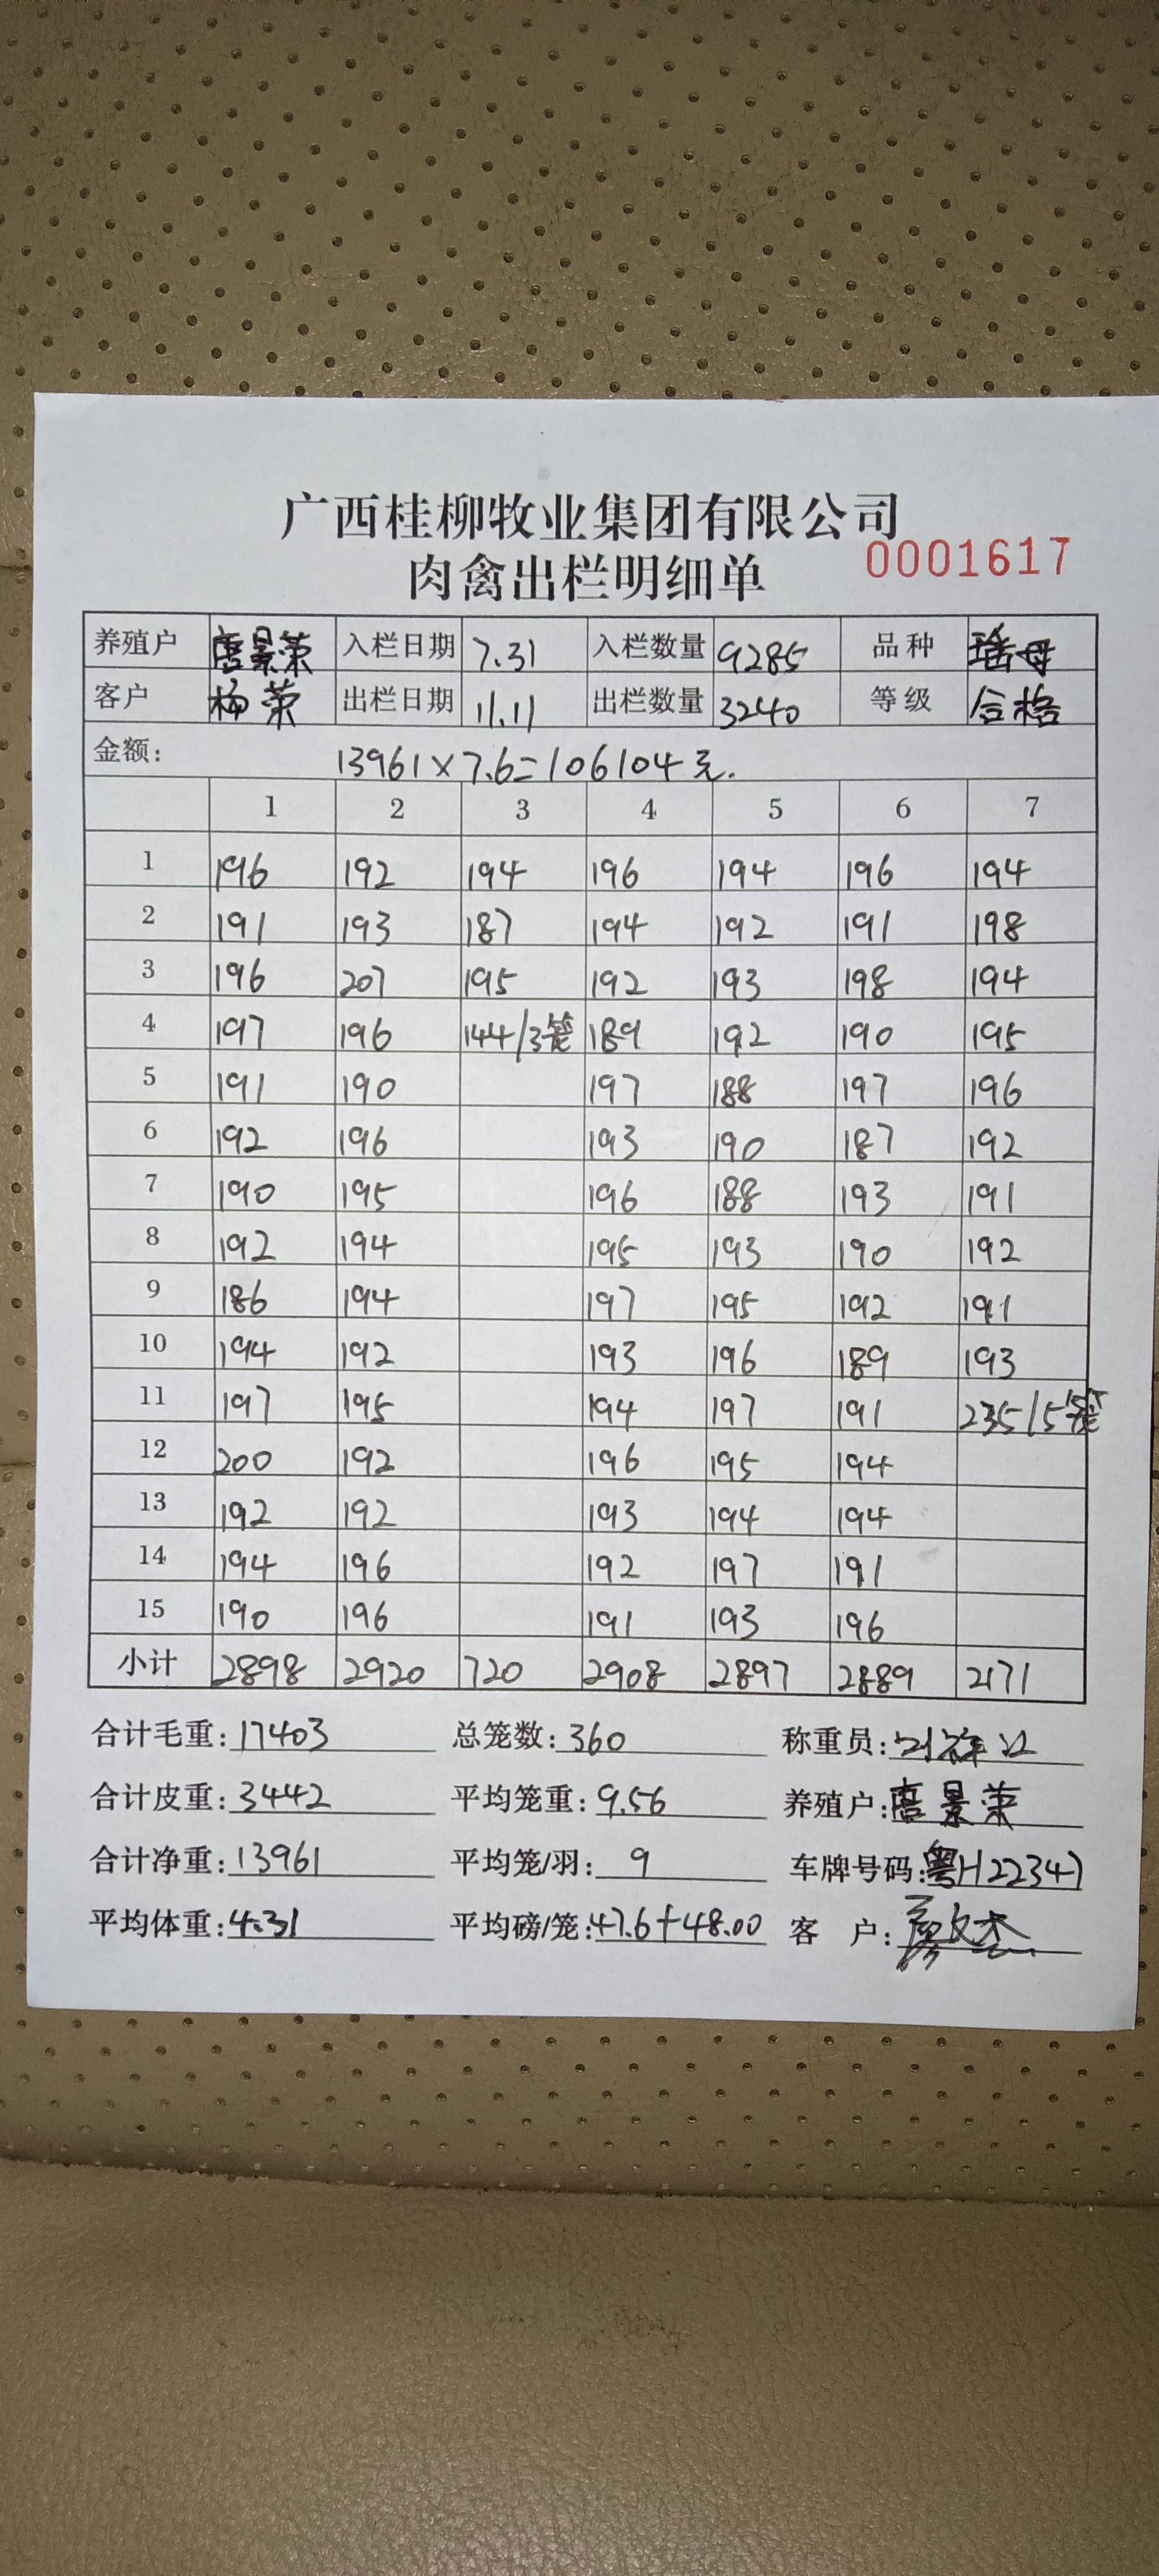 广西桂柳牧业集团有限公司
肉禽出栏明细单
0001617
养殖户 唐景荣 入栏日期 7.31 入栏数量 9285 品种 瑶母
客户 杨荣 出栏日期 11.11 出栏数量 3240 等级 合格
金额: 13961×7.6=106104元.
1 2 3 4 5 6 7
1 196 192 194 196 194 196 194
2 191 193 187 194 192 191 198
3 196 207 195 192 193 198 194
4 197 196 144/3笼 189 192 190 195
5 191 190 197 188 197 196
6 192 196 193 190 187 192
7 190 195 196 188 193 191
8 192 194 195 193 190 192
9 186 194 197 195 192 191
10 194 192 193 196 189 193
11 197 195 194 197 191 235/5笼
12 200 192 196 195 194
13 192 192 193 194 194
14 194 196 192 197 191
15 190 196 191 193 196
小计 2898 2920 720 2908 2897 2889 2171
合计毛重: 17403 总笼数: 360 称重员:
合计皮重: 3442 平均笼重: 9.56 养殖户: 唐景荣
合计净重: 13961 平均笼/羽: 9 车牌号码: 粤H22347
平均体重: 4.31 平均磅/笼: 47.6+48.00 客 户: 廖文杰